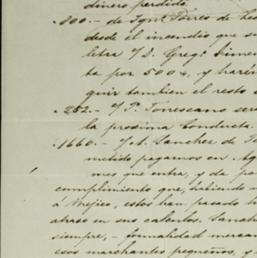 dinero perdido
800.- de Ign° Pérez de Le
desde el incendio que su
letra J. Greg° Simen
ta por 500 $, y harém
quir tambien el resto d
252.- J. P. Torrescano ser
la proxima Conducta.
1660.- J. A. Sanchez de T
metido pagarnos en Ag
mes que entra, y da p
cumplimiento que, habiendo
á Mejico, estos han pasado t
atrás en sus calculos. Sanch
siempre, - formalidad mercan
esos marchantes pequeños, y